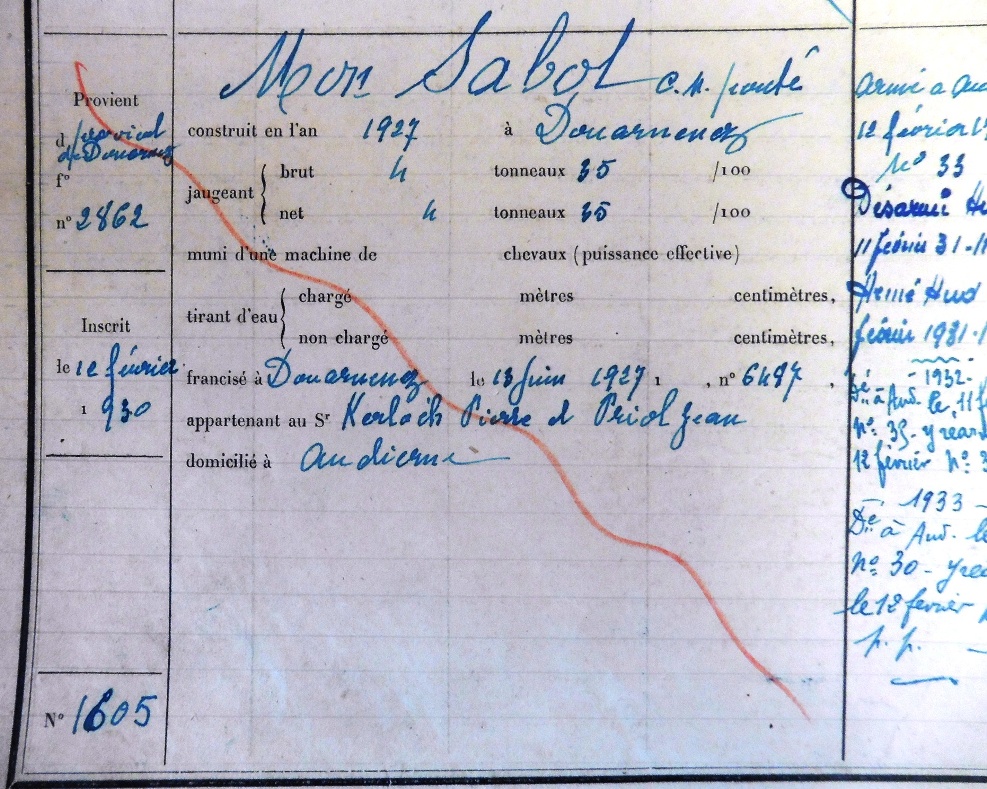 Provient
d
de Douarnenez
f°
n° 2862
Inscrit
le 12 février
1930
N° 1605
Mon Sabot C.N. ponté
construit en l'an 1927 à Douarnenez
jaugeant { brut 4 tonneaux 35 /100
net 4 tonneaux 35 /100
muni d'une machine de chevaux (puissance effective)
tirant d'eau { chargé mètres centimètres,
non chargé mètres centimètres,
francisé à Douarnenez le 13 Juin 1927 , n° 6497 ,
appartenant au Sr Kerloch Pierre et Priol Jean
domicilié à Audierne
Armé à Au
12 février 1
N° 33
Désarmé
11 février 31
février 1931
1932
Dé à Aud. le 11 f
N°
12 février N° 3
1933
Dé à Aud. le
N° 30 -
le 12 février
p. p.